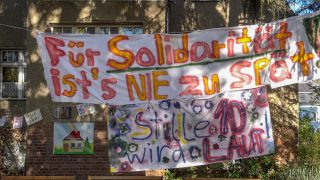 Für Solidarität
ist's NIE zu SPÄT
Stille 10
wird LAUT!